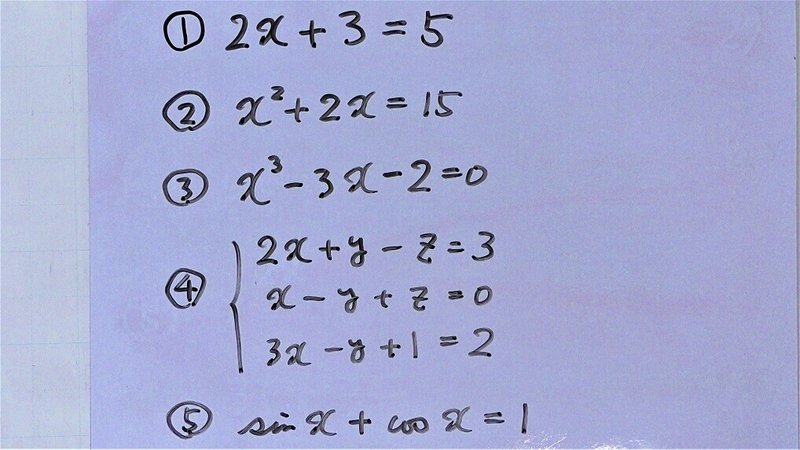 ① 2x + 3 = 5
② x² + 2x = 15
③ x³ - 3x - 2 = 0
④ { 2x + y - z = 3
x - y + z = 0
3x - y + 1 = 2
⑤ sin x + cos x = 1